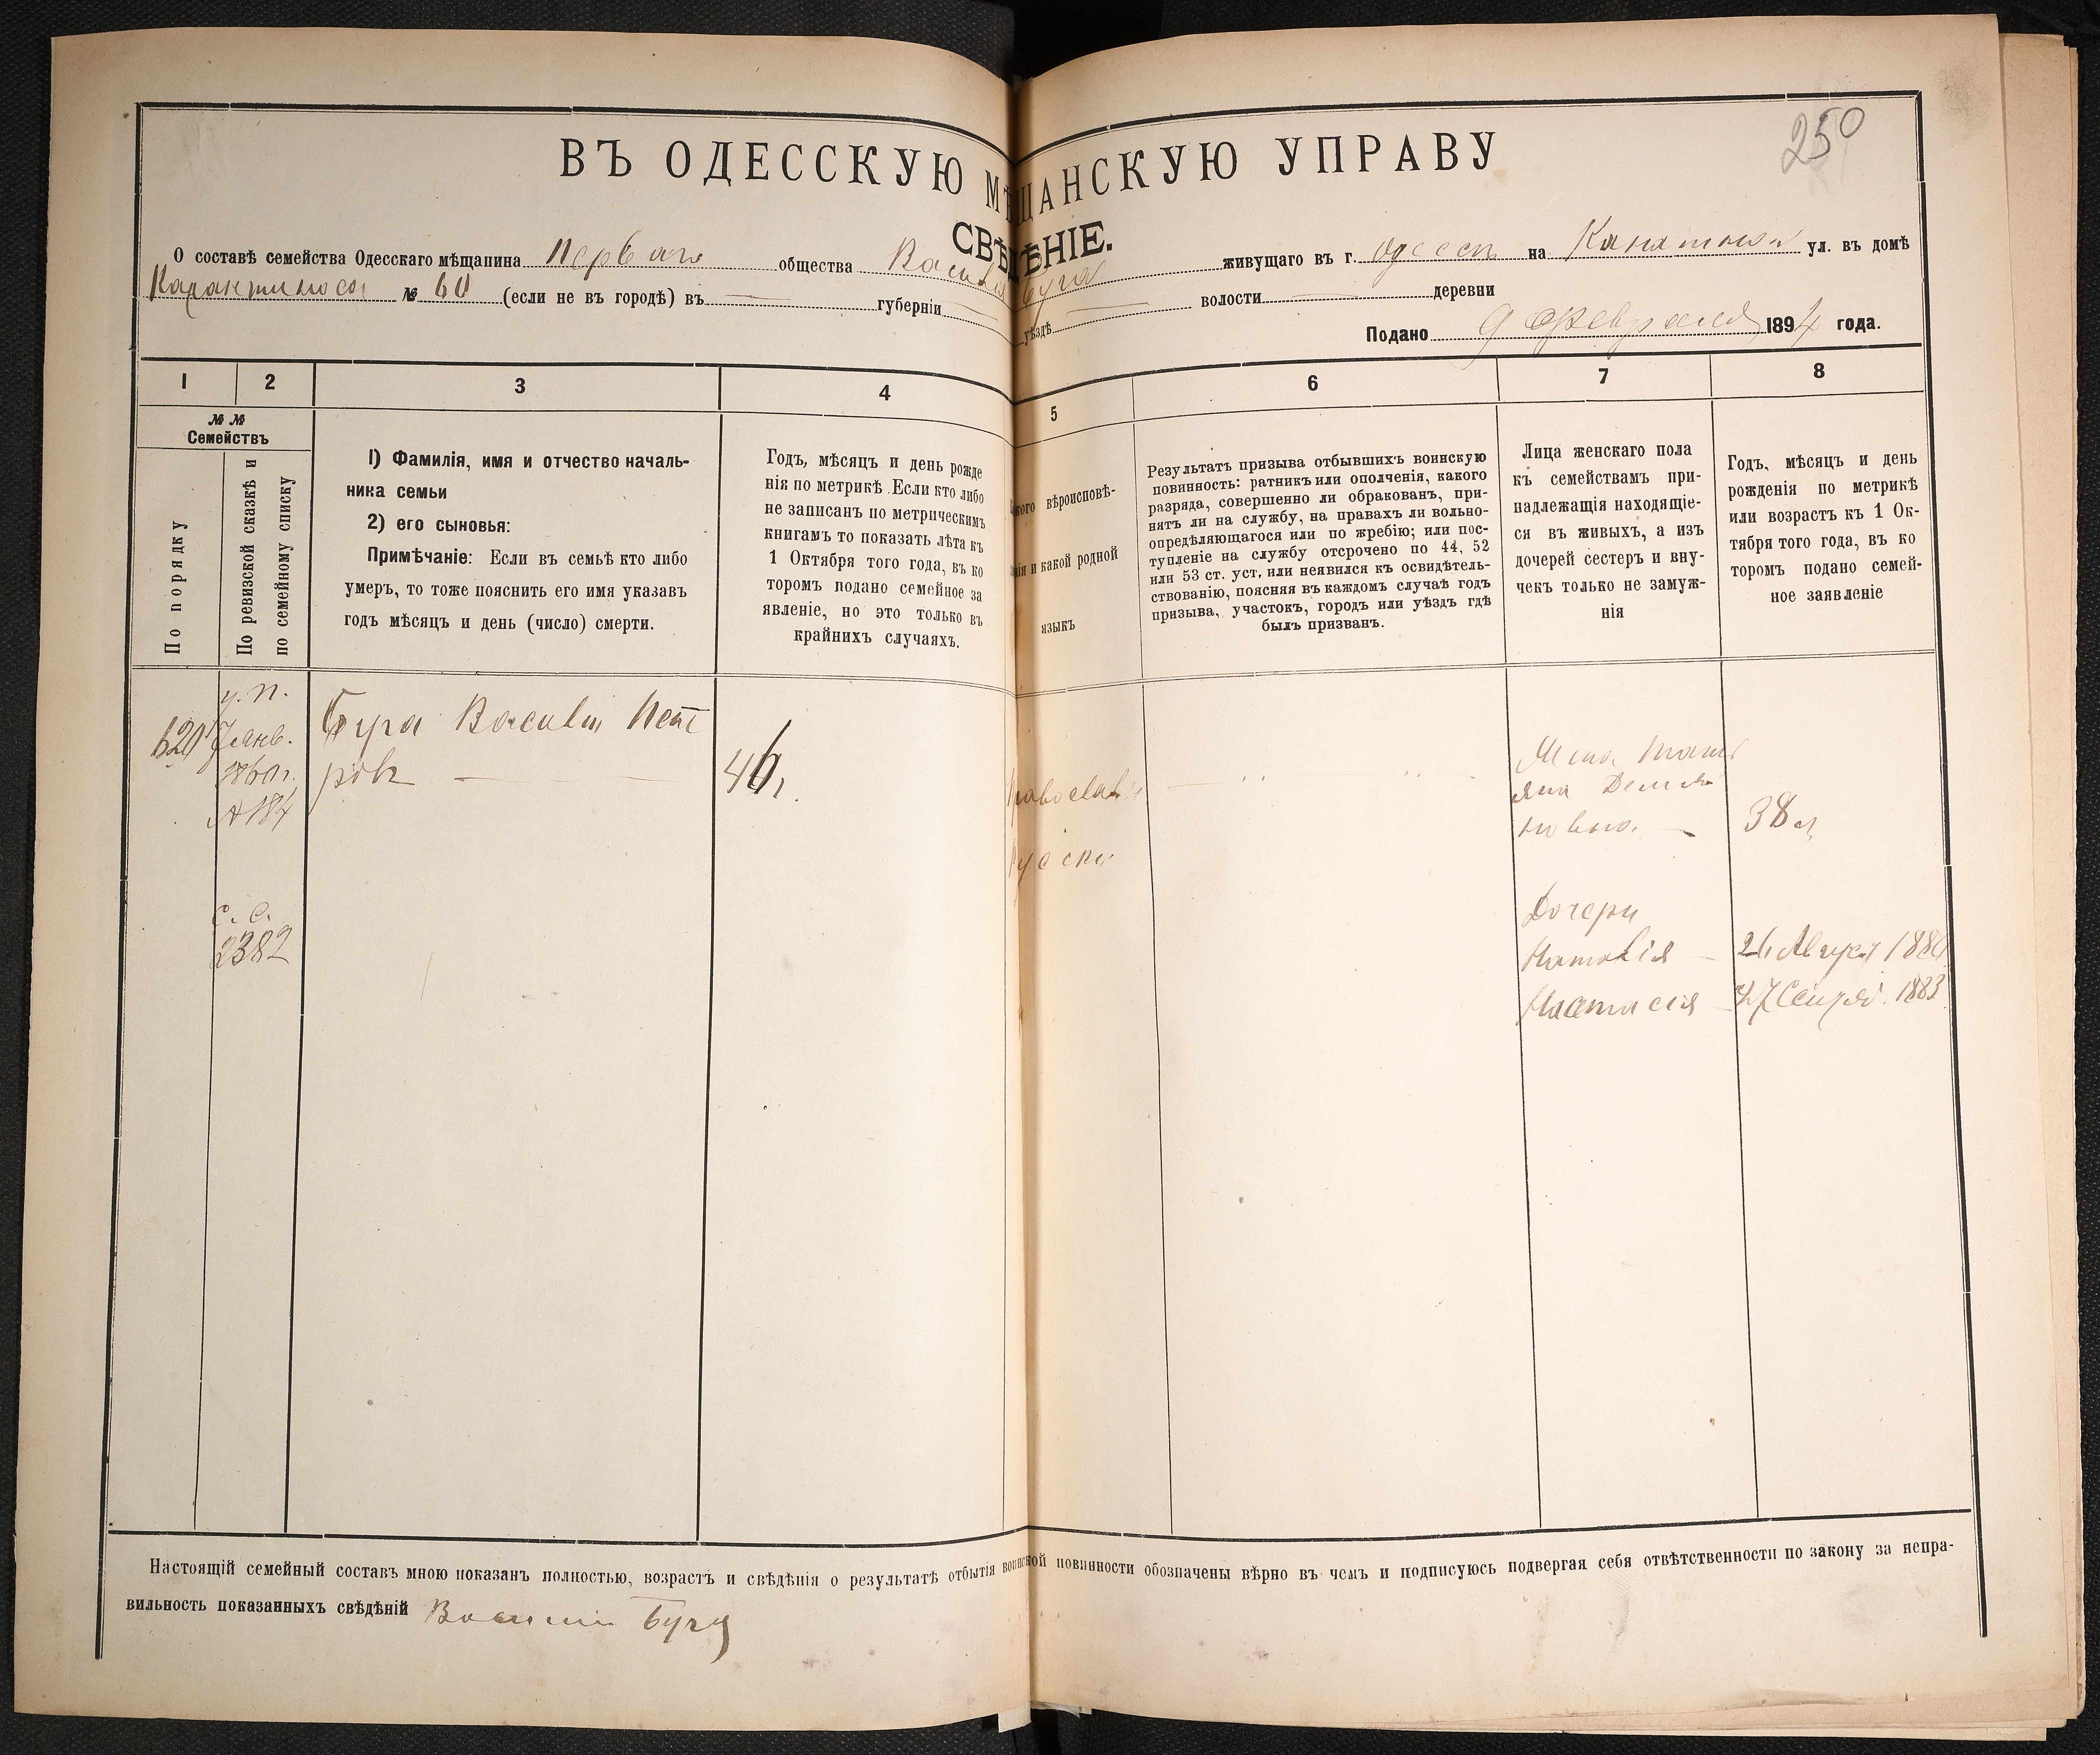 250
ВЪ ОДЕССКУЮ МѢЩАНСКУЮ УПРАВУ
СВѢДѢНІЕ.
О составѣ семейства Одесскаго мѣщанина Перваго общества Василія Буга живущаго въ г. Одессѣ на Канатной ул. въ домѣ
№ 60 (если не въ городѣ) въ — губерніи — уѣздѣ — волости — деревни
Подано 9 Февраля 1894 года.
1 2 3 4 5 6 7 8
№ №
Семействъ
По порядку
По ревизской сказкѣ и
по семейному списку
1) Фамилія, имя и отчество началь-
ника семьи
2) его сыновья:
Примѣчаніе: Если въ семьѣ кто либо
умеръ, то тоже пояснить его имя указавъ
годъ мѣсяцъ и день (число) смерти.
Годъ, мѣсяцъ и день рожде
нія по метрикѣ. Если кто либо
не записанъ по метрическимъ
книгамъ то показать лѣта къ
1 Октября того года, въ ко
торомъ подано семейное за
явленіе, но это только въ
крайнихъ случаяхъ.
вѣроисповѣ-
и какой родной
языкъ
Результатъ призыва отбывшихъ воинскую
повинность: ратникъ или ополченія, какого
разряда, совершенно ли обракованъ, при-
нятъ ли на службу, на правахъ ли вольно-
опредѣляющагося или по жребію; или пос-
тупленіе на службу отсрочено по 44, 52
или 53 ст. уст. или неявился къ освидѣтель-
ствованію, поясняя въ каждомъ случаѣ годъ
призыва, участокъ, городъ или уѣздъ гдѣ
былъ призванъ.
Лица женскаго пола
къ семействамъ при-
надлежащія находящіе-
ся въ живыхъ, а изъ
дочерей сестеръ и вну-
чекъ только не замуж-
нія
Годъ, мѣсяцъ и день
рожденія по метрикѣ
или возрастъ къ 1 Ок-
тября того года, въ ко
торомъ подано семей-
ное заявленіе
у. п.
620 7 Янв.
1860 г.
№ 184
с. с.
2382
Буга Василій Пет
ровъ —
46 г.
Православн
Русски
Жена Тать
яна Демья
новна. — 38 л
Дочери
Наталія — 26 Август 188
Настасія — 27 Сентяб. 1883
Настоящій семейный составъ мною показанъ полностью, возрастъ и свѣдѣнія о результатѣ отбытія воинской повинности обозначены вѣрно въ чемъ и подписуюсь подвергая себя отвѣтственности по закону за непра-
вильность показанныхъ свѣдѣній Василий Буга